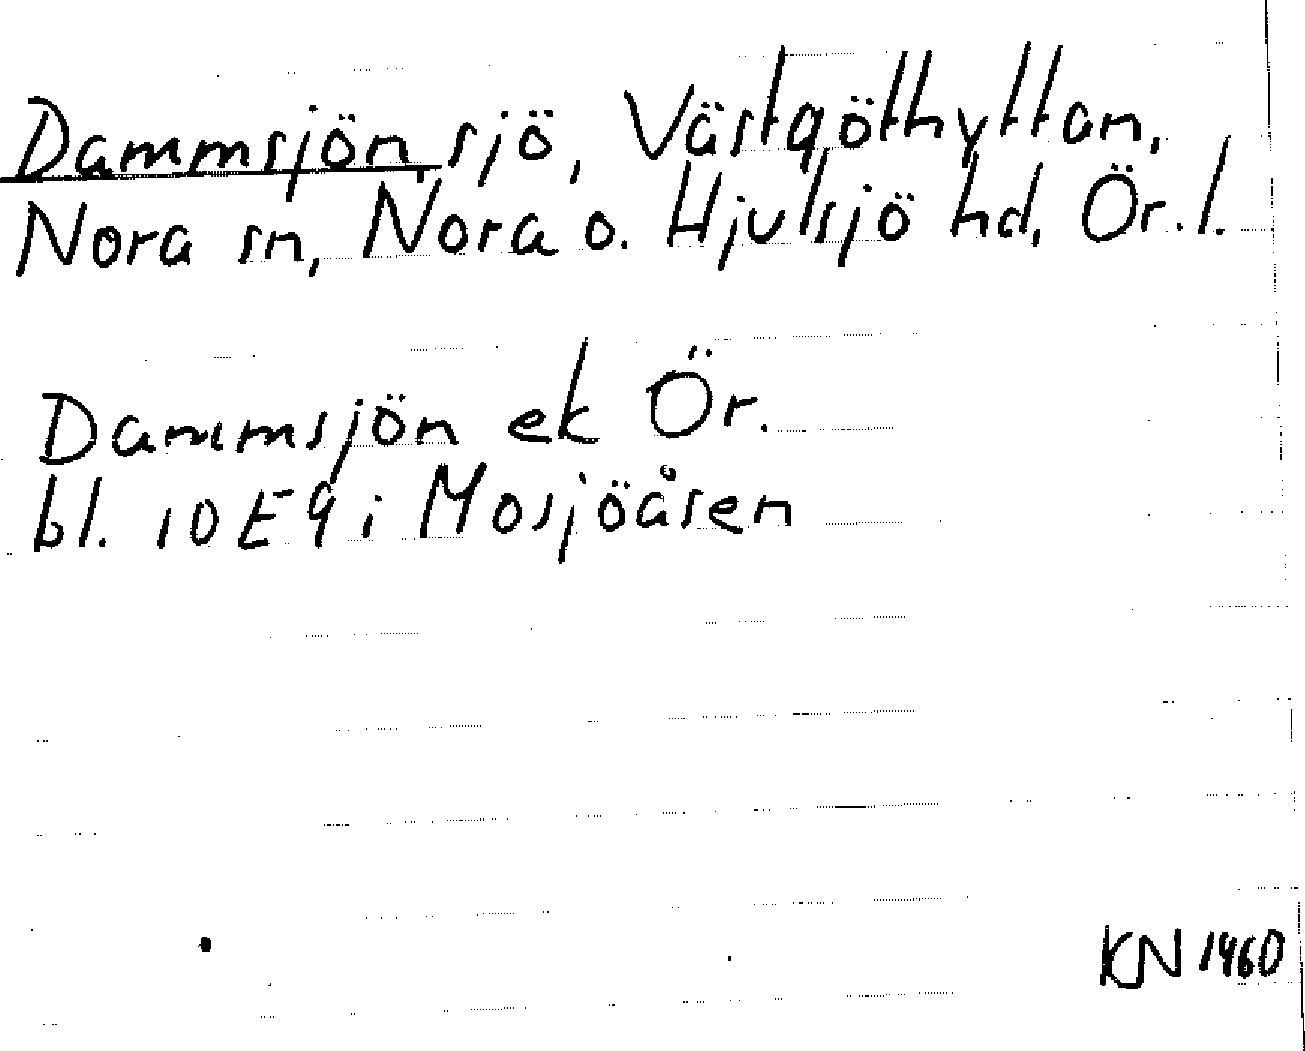 Dammsjön, sjö, Västgöthyttan,
Nora sn, Nora o. Hjulsjö hd, Ör. l.
Dammsjön ek Ör.
bl. 10E9i Mosjöåsen
KN 1960